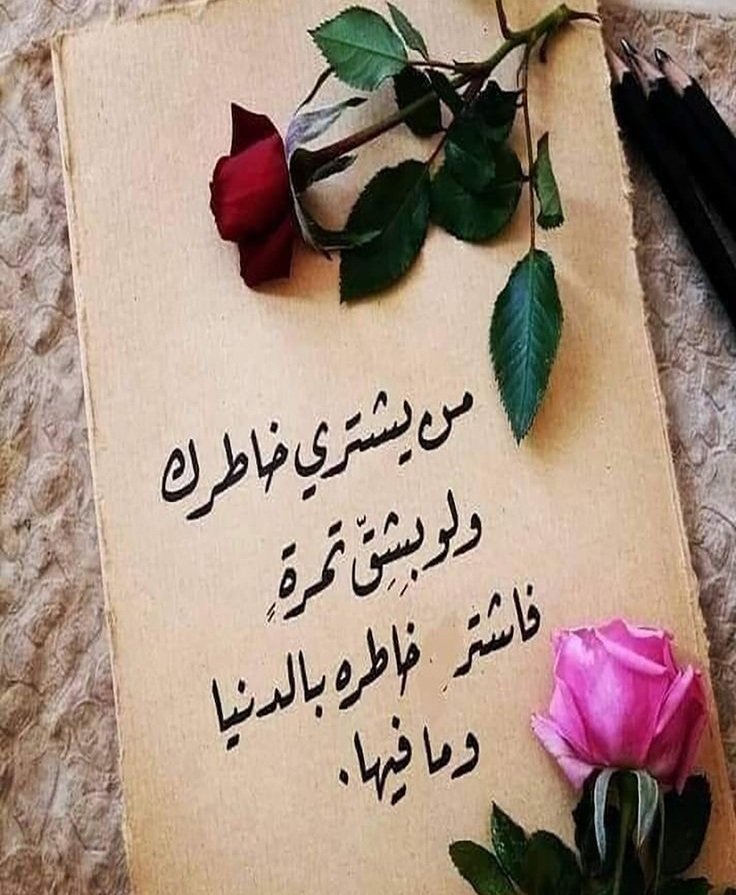 من يشتري خاطرك
ولو بِشِقّ تمرةٍ
فاشترِ خاطره بالدنيا
وما فيها.